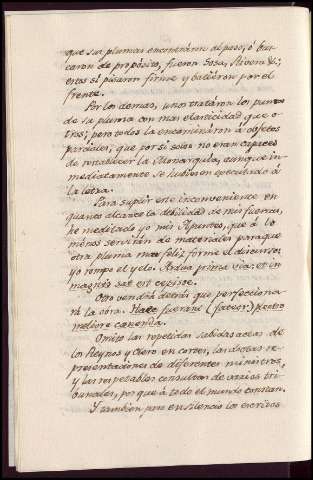 que sus plumas encontraron al paso, ó bus-
caron de propósito, fueron Sosa, Rivero &c;
estos sí pisaron firme y batieron por el
frente.
Por lo demas, unos trataron los puntos
de su pluma con mas elasticidad que o-
tros; pero todos la encaminaron á objetos
parciales; que por sí solos no eran capaces
de restablecer la Monarquía, aunque in-
mediatamente se hubiesen executado á
la letra.
Para suplir este inconveniente en
quanto alcance la debilidad de mis fuerzas,
he meditado yo mis Apuntes, que á lo
menos servirán de materiales para que
otra pluma mas feliz forme el discurso;
yo rompo el yelo. Ardua prima via: et in
magnis sat est cepisse.
Otro vendrá detrás que perfecciona-
rá la obra. Haec fuerant (fateor)
meliore canenda.
Omito las repetidas sabidas actas de
los Reynos y Clero en cortes, las doctas re-
presentaciones de diferentes ministros,
y las respetables consultas de varios tri-
bunales, porque á todo el mundo constan.
Y tambien paso en silencio los escritos